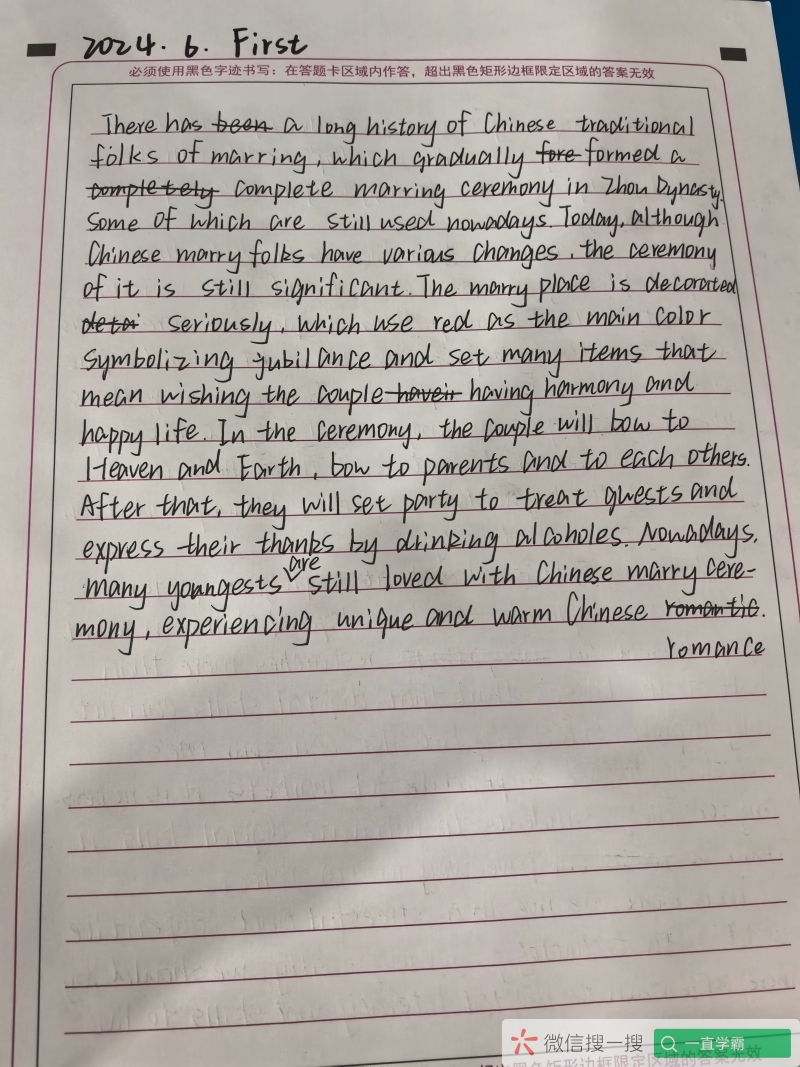 2024. 6. First
必须使用黑色字迹书写：在答题卡区域内作答，超出黑色矩形边框限定区域的答案无效
There has been a long history of Chinese traditional
folks of marring, which gradually fore formed a
completely complete marring ceremony in Zhou Dynasty.
Some of which are still used nowadays. Today, although
Chinese marry folks have various changes, the ceremony
of it is still significant. The marry place is decorated
detai seriously, which use red as the main color
symbolizing jubilance and set many items that
mean wishing the couple haveir having harmony and
happy life. In the ceremony, the couple will bow to
Heaven and Earth, bow to parents and to each others.
After that, they will set party to treat guests and
express their thanks by drinking alcoholes. Nowadays,
many youngests are still loved with Chinese marry cere-
mony, experiencing unique and warm Chinese romantic.
romance
微信搜一搜 一直学霸
黑色矩形边框限定区域的答案无效